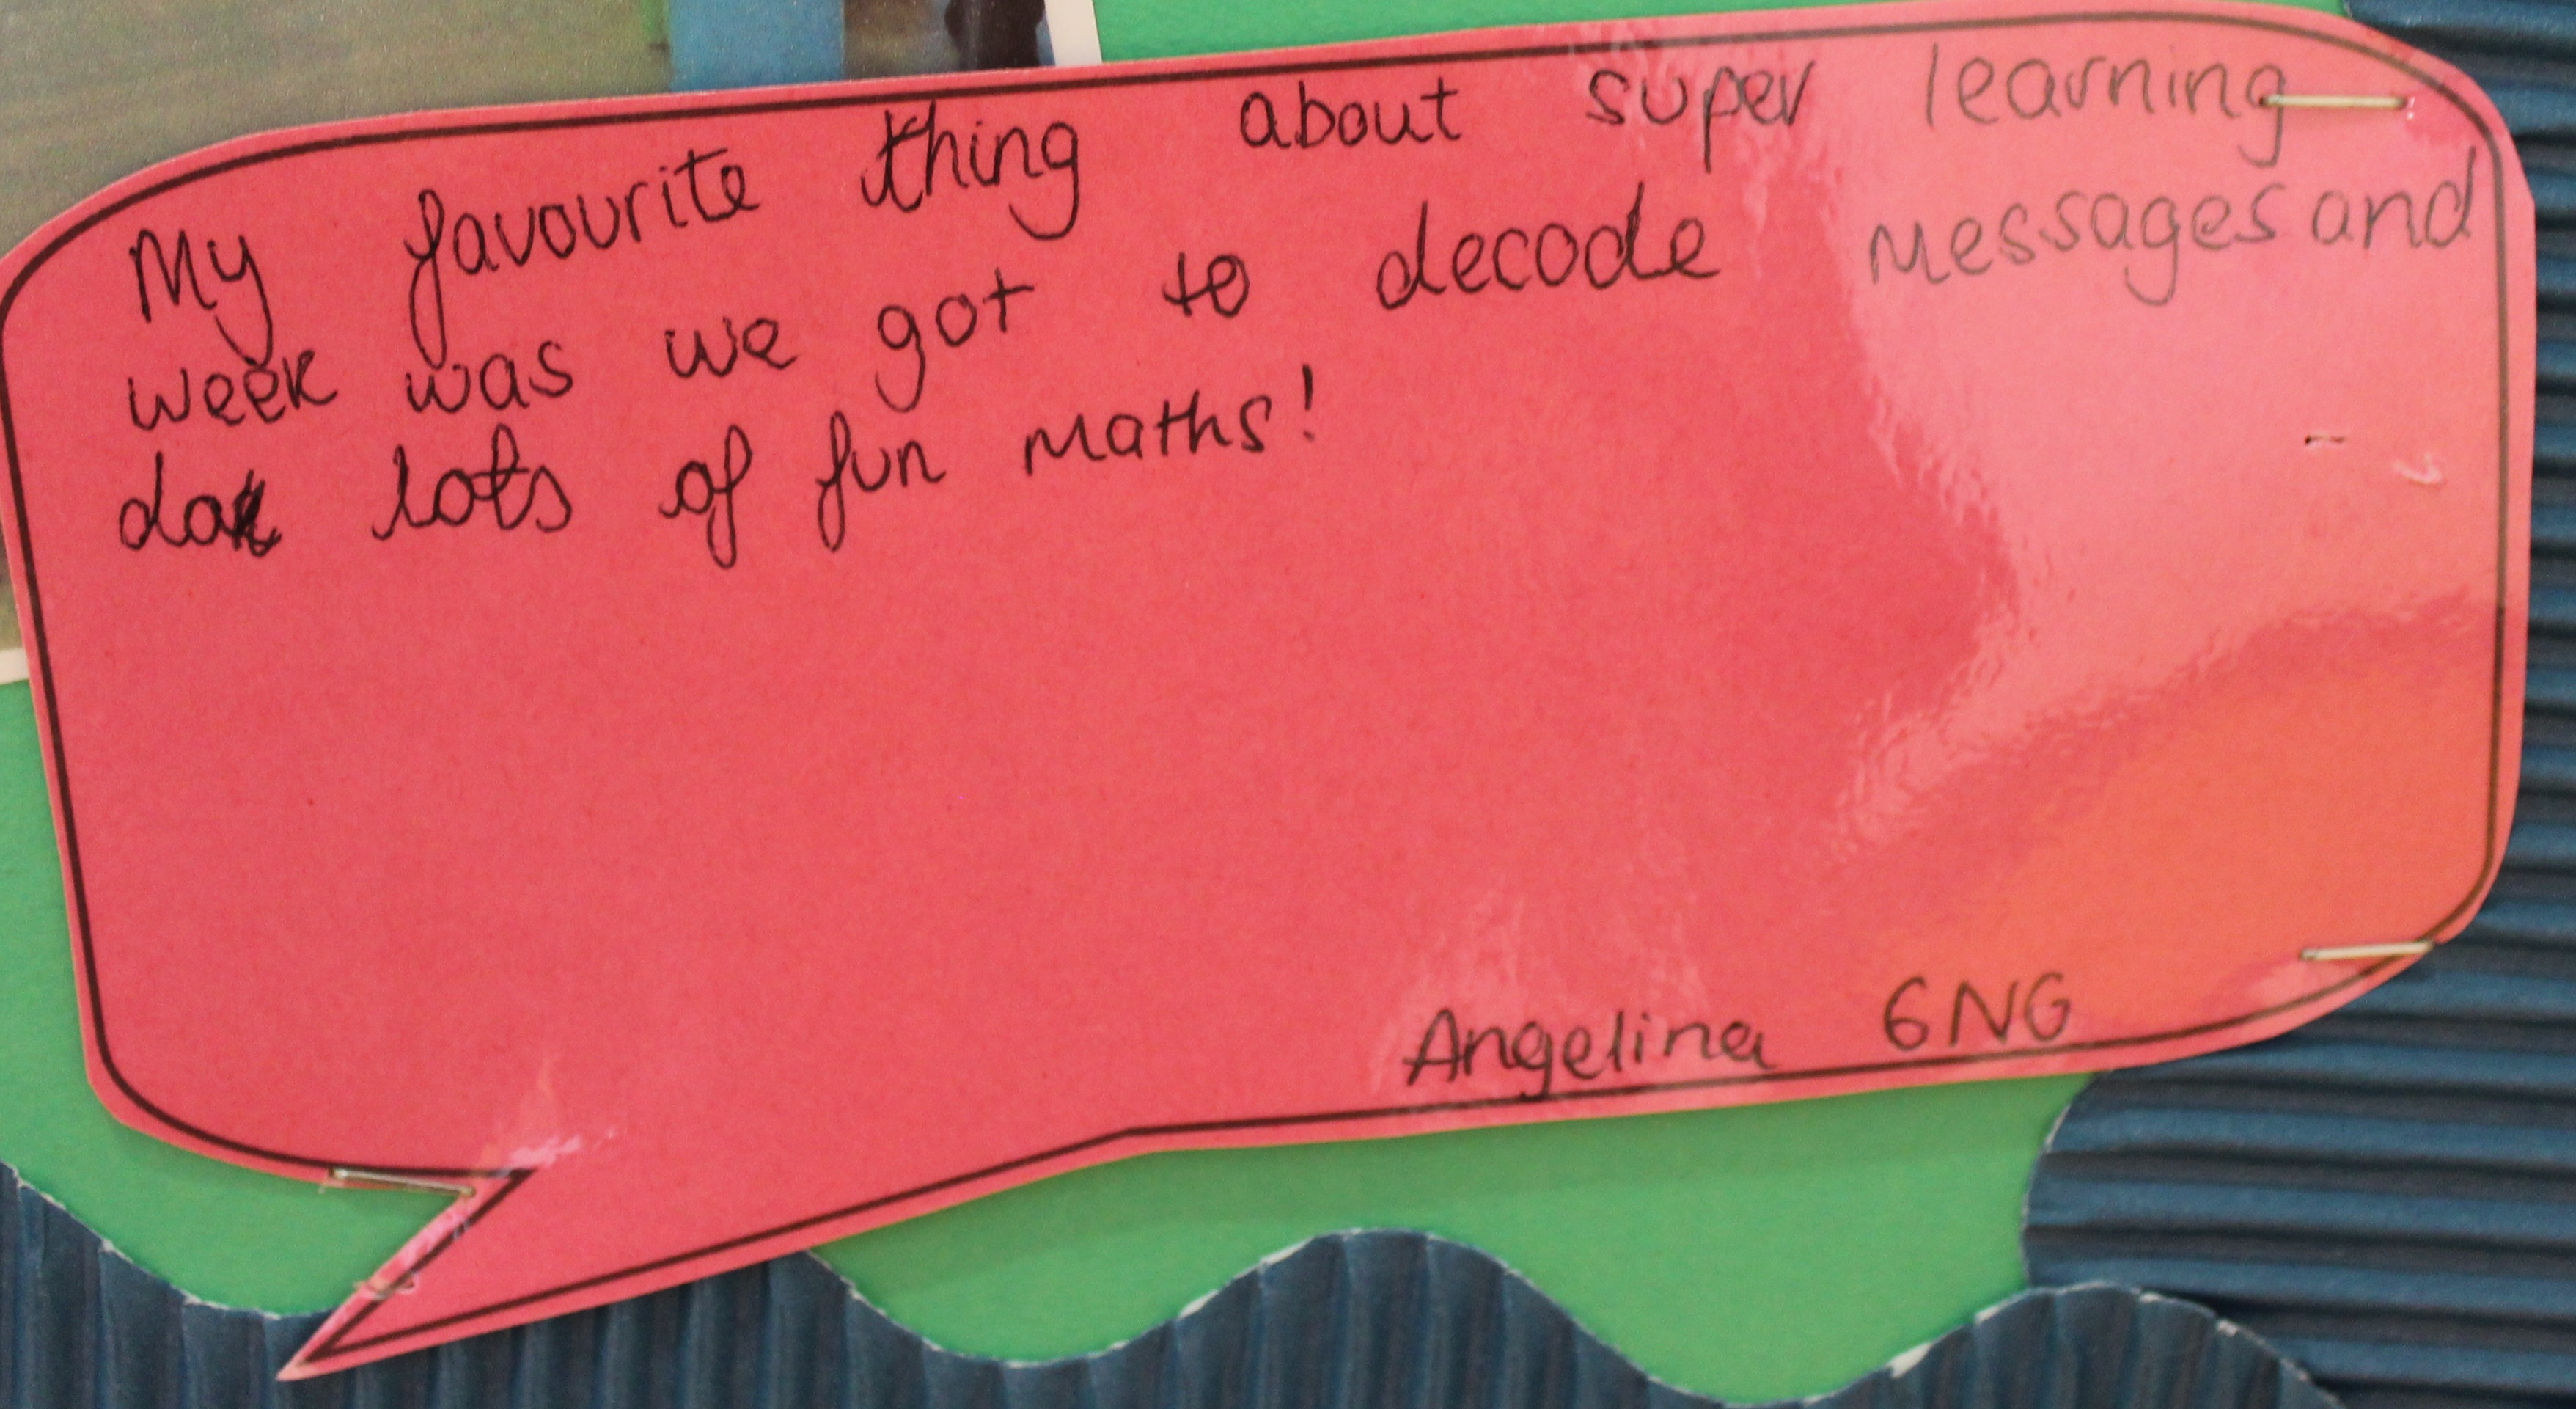 My favourite thing about super learning
week was we got to decode messages and
do lots of fun maths!
Angelina 6NG